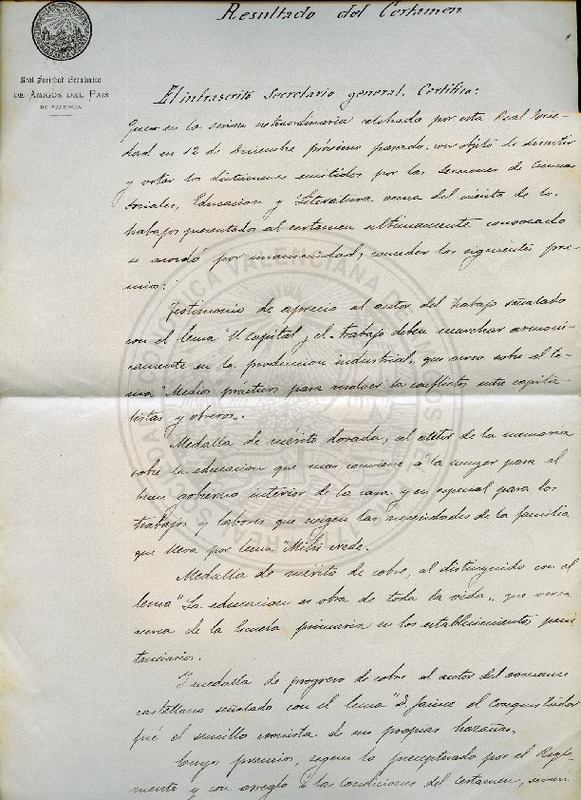 Resultado del Certamen
Real Sociedad Económica
DE AMIGOS DEL PAIS
DE VALENCIA
El infrascrito Secretario general, Certifico:
Que en la sesion extraordinaria celebrada por esta Real Socie-
dad en 12 de Diciembre próximo pasado, con objeto de discutir
y votar los dictámenes emitidos por las Secciones de Ciencias
Sociales, Educacion y Literatura acerca del mérito de los
trabajos presentados al certamen ultimamente convocado
se acordó por unanimidad, conceder los siguientes pre-
mios:
Testimonio de aprecio al autor del trabajo señalado
con el lema "El capital y el trabajo deben marchar armoni-
camente en la produccion industrial" que versa sobre el te-
ma "Medios practicos para resolver los conflictos entre capita-
listas y obreros".
Medalla de mérito dorada, al autor de la memoria
sobre la educacion que mas conviene á la mujer para el
buen gobierno interior de la casa, y en especial para los
trabajos y labores que exigen las necesidades de la familia
que lleva por lema "Mihi crede.
Medalla de mérito de cobre, al distinguido con el
lema "La educacion es obra de toda la vida", que versa
acerca de la Escuela primaria en los establecimientos peni-
tenciarios.
Y medalla de progreso de cobre al autor del romance
castellano señalado con el lema "D. Jaime el conquistador
fué el sencillo cronista de sus propias hazañas".
Cuyos premios, segun lo preceptuado por el Regla-
mento y con arreglo á las condiciones del certamen, seran